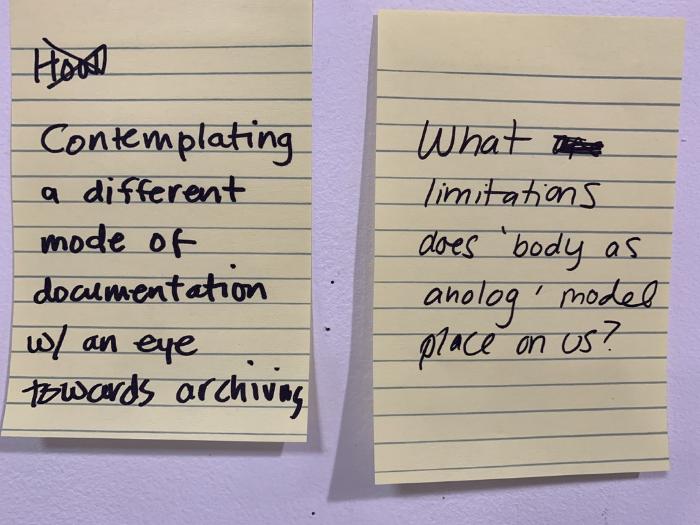 Contemplating
a different
mode of
documentation
w/ an eye
towards archiving
What
limitations
does 'body as
anolog' model
place on us?